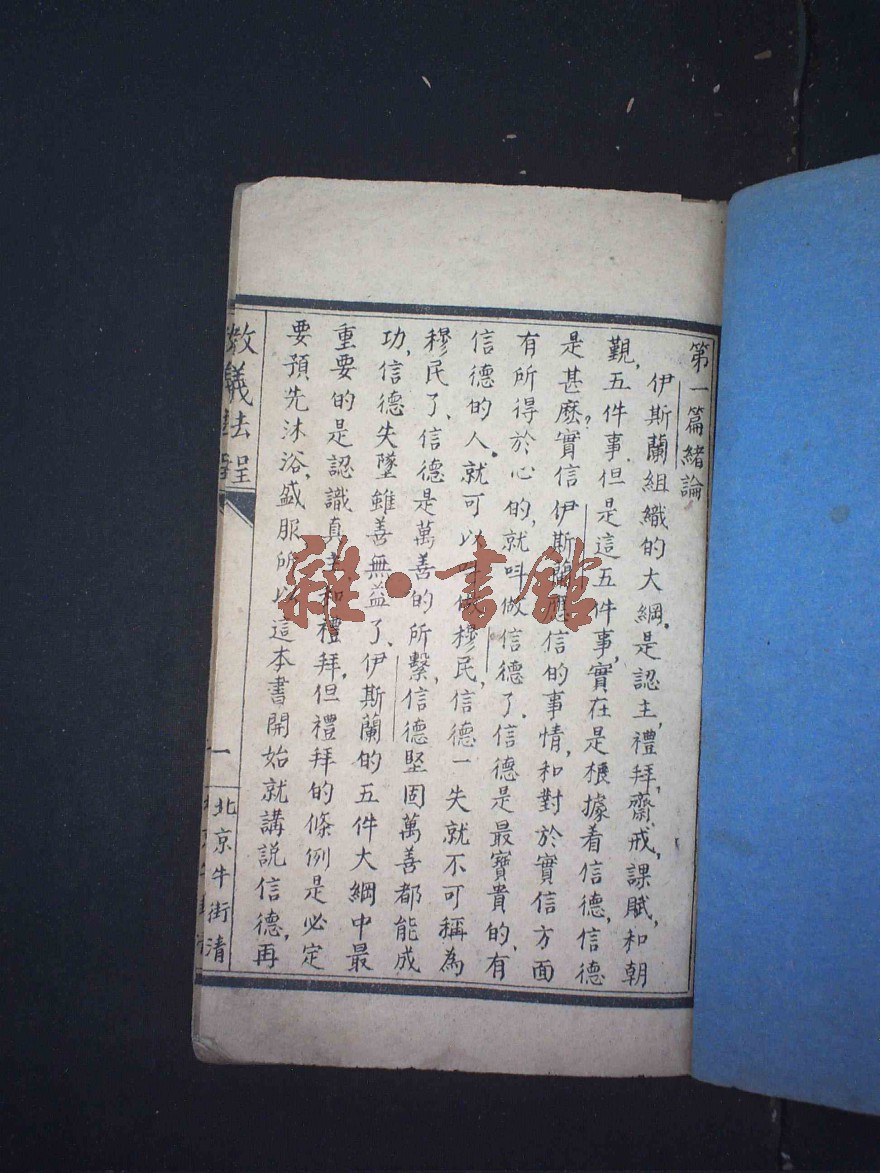 第一篇緒論
伊斯蘭組織的大綱。是認主,禮拜,齋戒,課賦,和朝
覲,五件事.但是這五件事,實在是根據着信德,信德
是甚麽?實信伊斯蘭應信的事情,和對於實信方面
有所得於心的,就叫做信德了.信德是最寶貴的.有
信德的人.就可以做穆民,信德一失就不可稱為
穆民了、信德是萬善的所繫,信德堅固萬善都能成
功,信德失墜雖善無益了、伊斯蘭的五件大綱中最
重要的是認識真主和禮拜,但禮拜的條例是必定
要預先沐浴,盛服所以這本書開始就講説信德,再
教義法程
一
北京牛街清
雜·書館